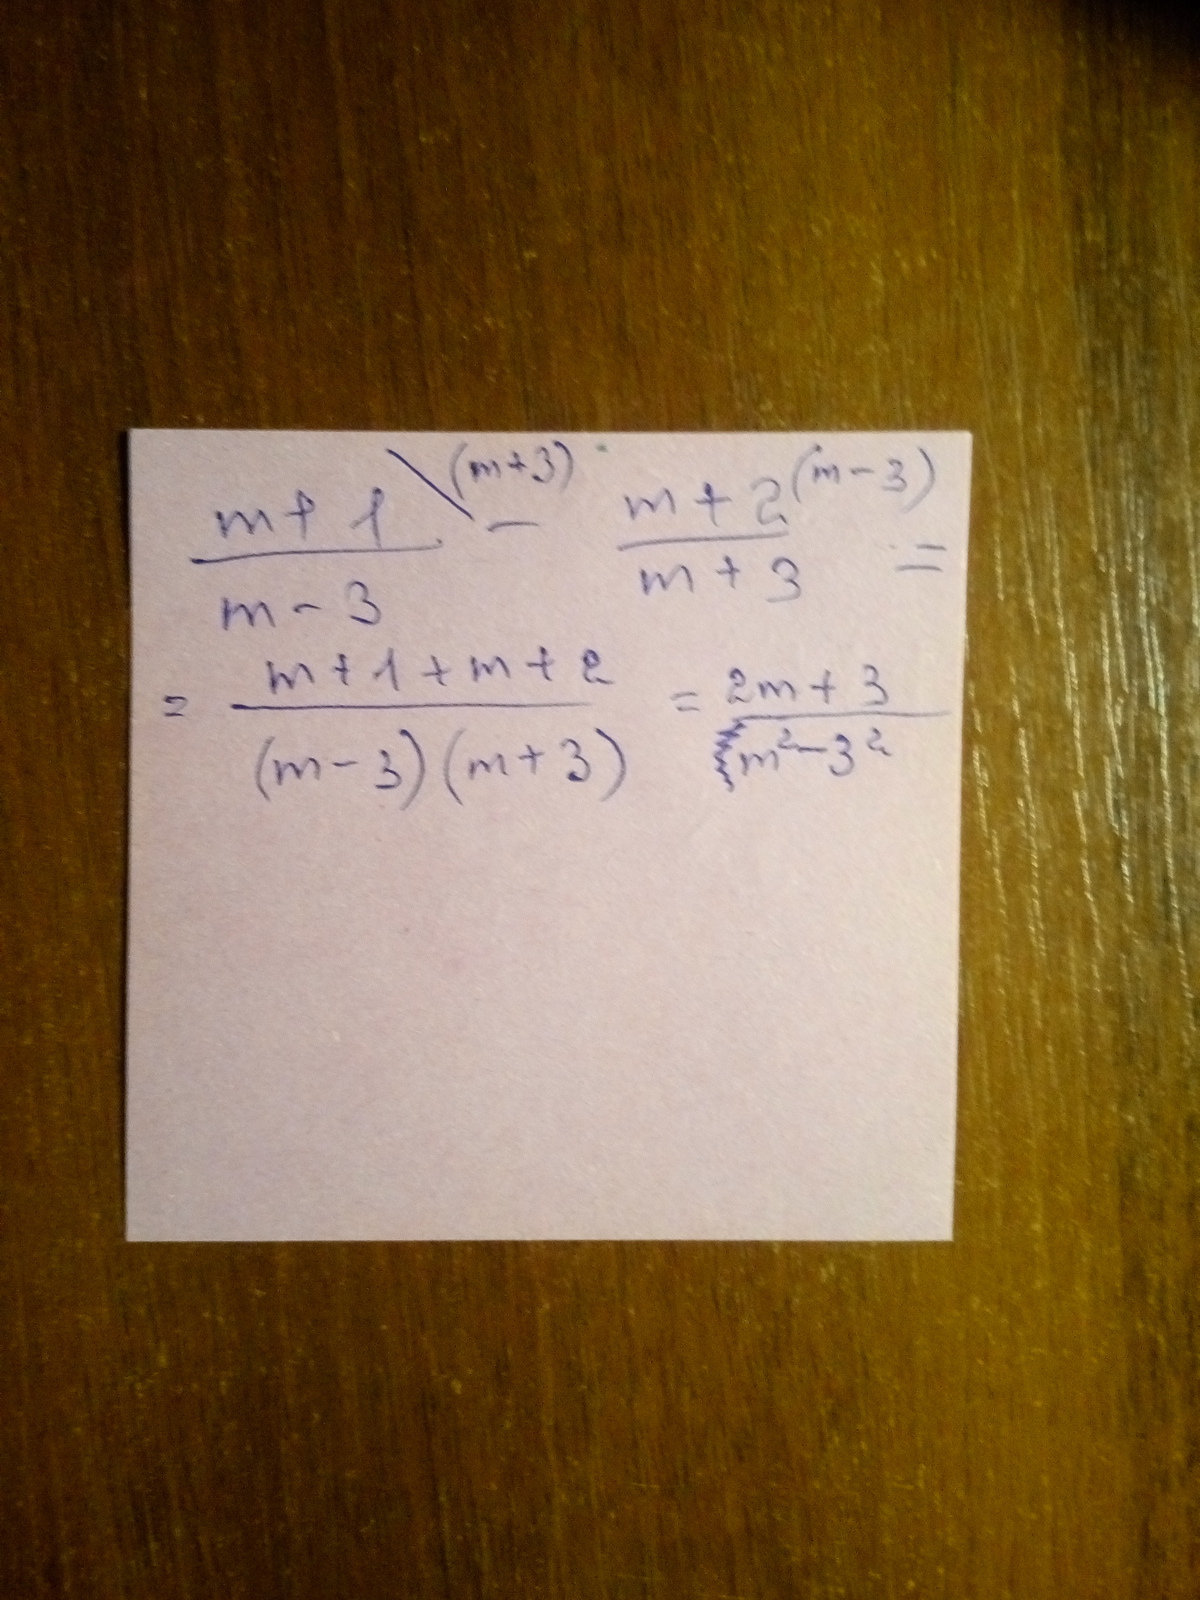 m + 1 \ (m+3) - m + 2 (m - 3) =
m - 3 m + 3
= m + 1 + m + 2 = 2m + 3
(m - 3) (m + 3) m² - 3²